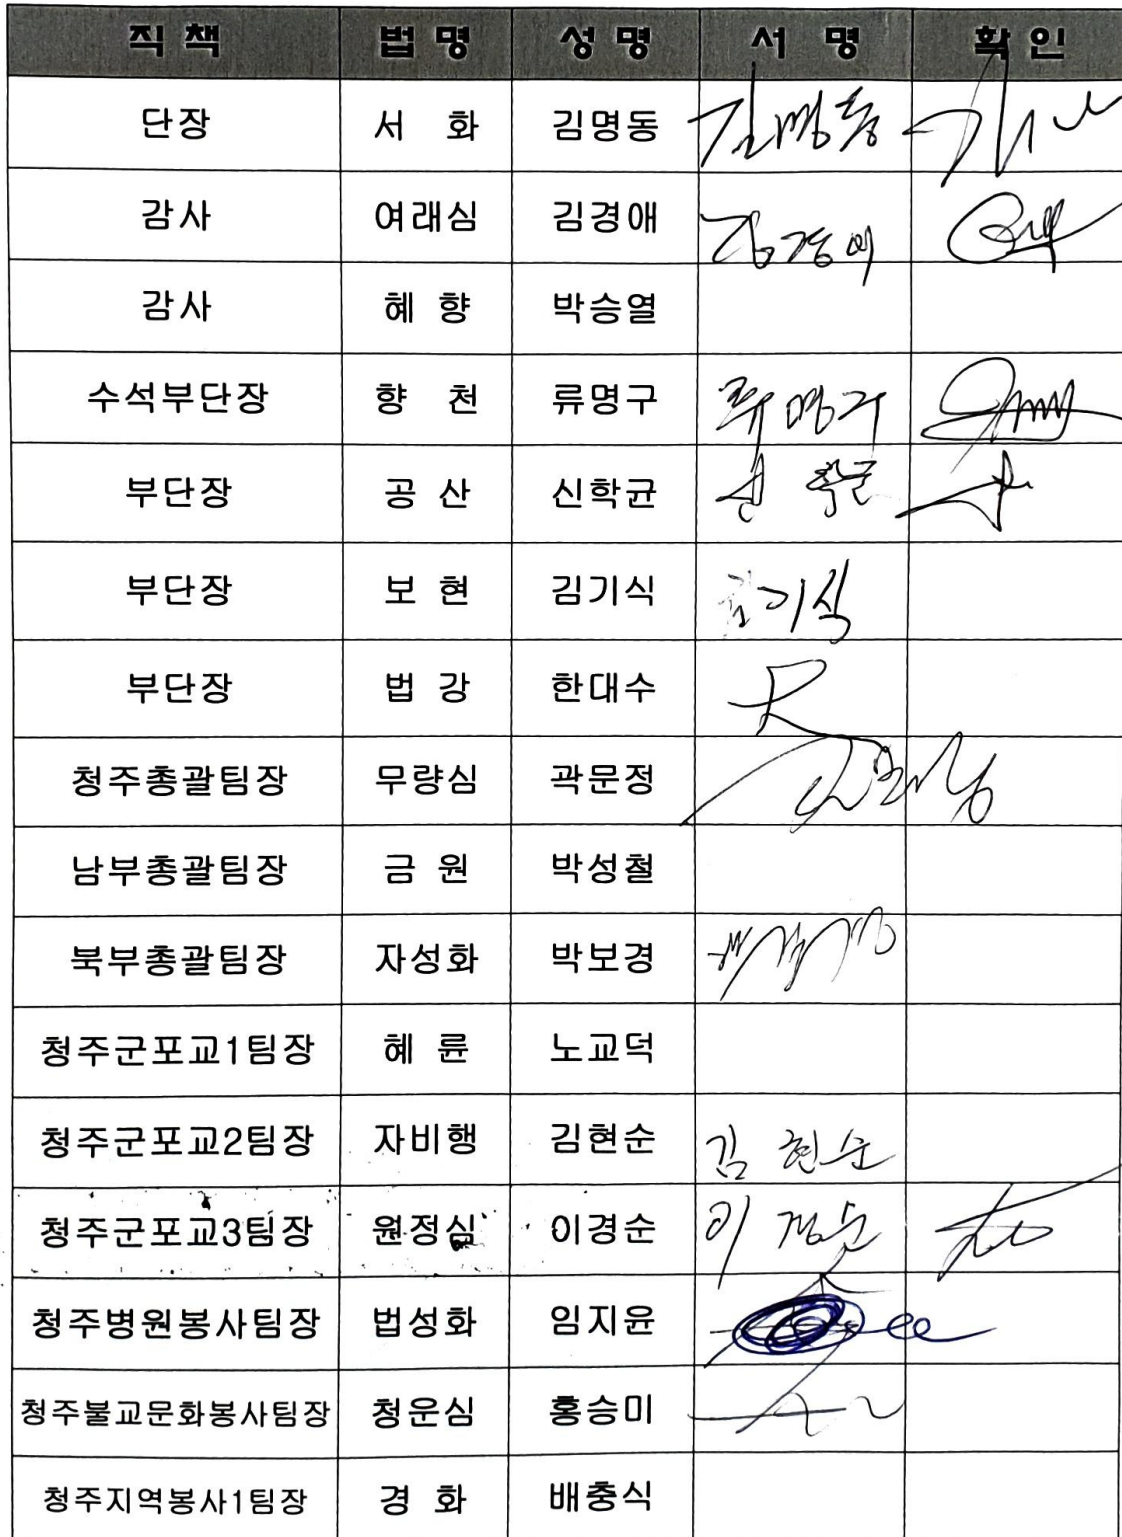 직 책 법 명 성 명 서 명 확 인
단장 서 화 김명동 김명동
감사 여래심 김경애 김경애
감사 혜 향 박승열
수석부단장 향 천 류명구 류명구
부단장 공 산 신학균 신학균
부단장 보 현 김기식 김기식
부단장 법 강 한대수
청주총괄팀장 무량심 곽문정
남부총괄팀장 금 원 박성철
북부총괄팀장 자성화 박보경
청주군포교1팀장 혜 륜 노교덕
청주군포교2팀장 자비행 김현순 김현순
청주군포교3팀장 원정심 이경순 이경순
청주병원봉사팀장 법성화 임지윤
청주불교문화봉사팀장 청운심 홍승미
청주지역봉사1팀장 경 화 배충식